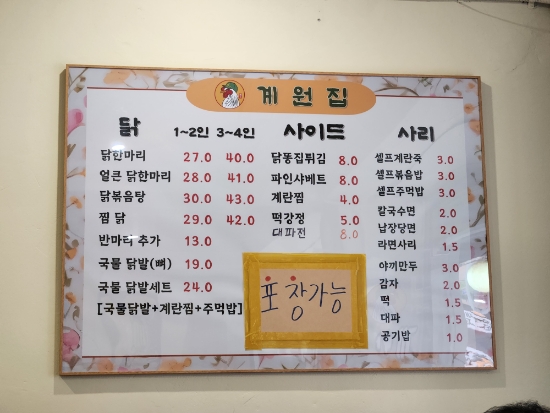 계원집
닭 1~2인 3~4인
닭한마리 27.0 40.0
얼큰 닭한마리 28.0 41.0
닭볶음탕 30.0 43.0
찜 닭 29.0 42.0
반마리 추가 13.0
국물 닭발(뼈) 19.0
국물 닭발세트 24.0
[국물닭발+계란찜+주먹밥]
사이드
닭똥집튀김 8.0
파인샤베트 8.0
계란찜 4.0
떡강정 5.0
대파전 8.0
포장가능
사리
셀프계란죽 3.0
셀프볶음밥 3.0
셀프주먹밥 3.0
칼국수면 2.0
납작당면 2.0
라면사리 1.5
야끼만두 3.0
감자 2.0
떡 1.5
대파 1.5
공기밥 1.0